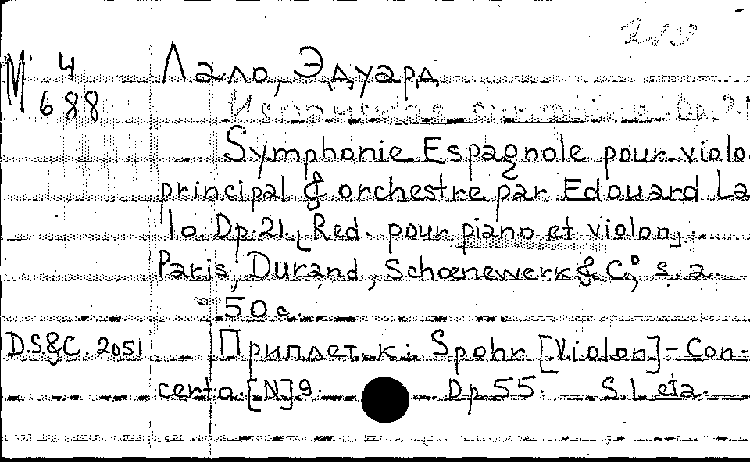 М 4 Лало, Эдуард
688 Испанская симфония. Op. 21
Symphonie Espagnole pour violo
principal & orchestre par Edouard La
lo Op. 21. [Red. pour piano et violon].
Paris, Durand, Schoenewerk & C°, s. a.
50 c.
D.S&C. 2051 Приплет. к: Spohr [Violon]-Con-
certo [N] 9. Op 55. S. l. eta.